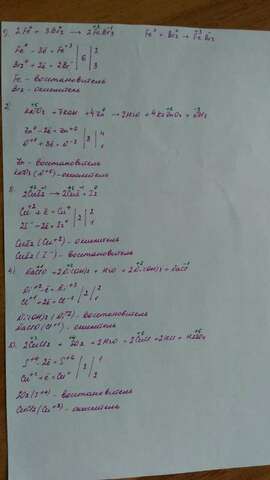 1) 2Fe⁰ + 3Br₂⁰ → 2Fe⁺³Br₃⁻¹ Fe⁰ + Br₂⁰ → Fe⁺³Br₃
Fe⁰ - 3ē = Fe⁺³ | 6 | 2
Br₂⁰ + 2ē = 2Br⁻ | 3
Fe - восстановитель
Br₂ - окислитель
2)
+ 7KOH + 4Zn⁰ → 2H₂O + 4K₂ZnO₂ + NH₃
Zn⁰ - 2ē = Zn⁺² | 8 | 4
+ 8ē = | 1
Zn - восстановитель
- окислитель
3) 2Cu⁺²I₂⁻¹ → 2Cu⁺¹I⁻¹ + I₂⁰
Cu⁺² + ē = Cu⁺ | 2 | 2
2I⁻ - 2ē = I₂⁰ | 1
CuI₂ (Cu⁺²) - окислитель
CuI₂ (I⁻) - восстановитель
4) NaClO + 2Ni(OH)₂ + H₂O = 2Ni(OH)₃ + NaCl
Ni⁺² - ē = Ni⁺³ | 2 | 2
Cl⁺¹ + 2ē = Cl⁻¹ | 1
Ni(OH)₂ (Ni⁺²) - восстановитель
NaClO (Cl⁺¹) - окислитель
5) 2CuCl₂ + SO₂ + 2H₂O = 2CuCl + 2HCl + H₂SO₄
S⁺⁴ - 2ē = S⁺⁶ | 2 | 1
Cu⁺² + ē = Cu⁺ | 2
SO₂ (S⁺⁴) - восстановитель
CuCl₂ (Cu⁺²) - окислитель